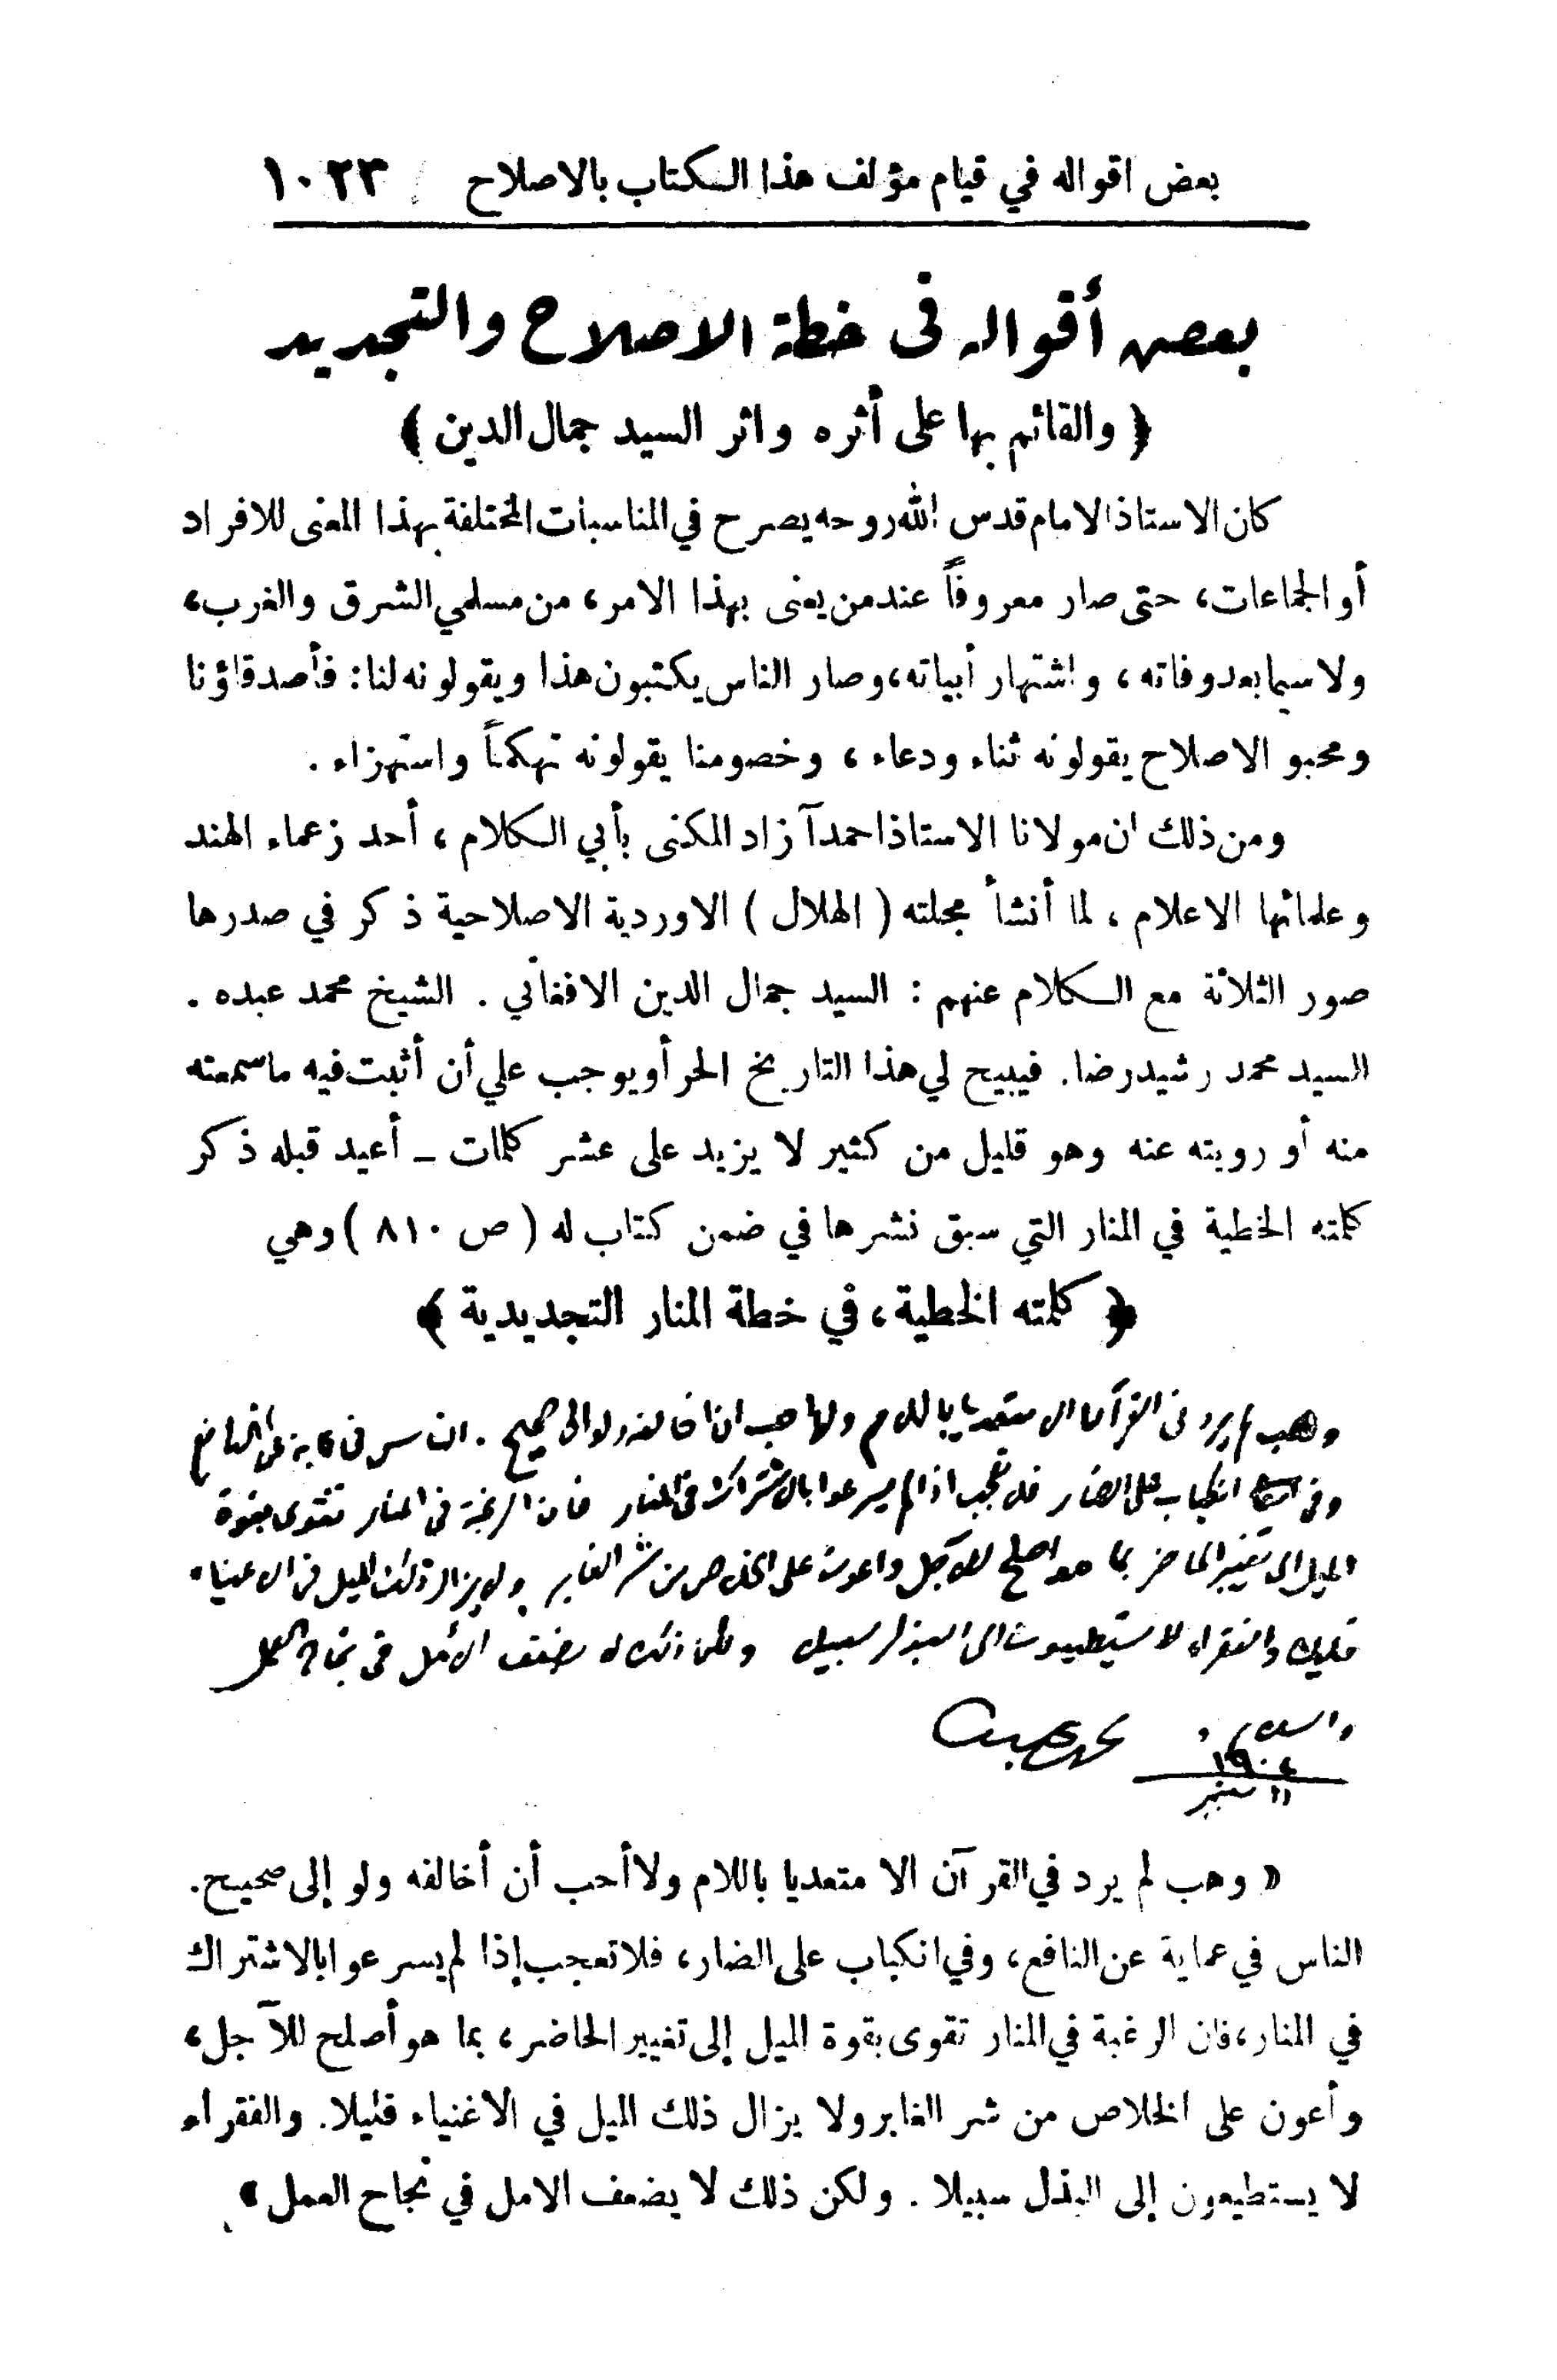 بعض اقواله في قيام مؤلف هذا الكتاب بالاصلاح ١٠٢٣
بعض أقواله فى خطة الاصلاح والتجديد
﴿ والقائم بها على أثره واثر السيد جمال الدين ﴾
كان الاستاذ الامام قدس الله روحه يصرح في المناسبات المختلفة بهذا المعنى للافراد
أو الجماعات، حتى صار معروفاً عند من يعنى بهذا الامر، من مسلمي الشرق والغرب،
ولا سيما بعد وفاته، واشتهار أبياته، وصار الناس يكتبون هذا ويقولونه لنا: فأصدقاؤنا
ومحبو الاصلاح يقولونه ثناء ودعاء، وخصومنا يقولونه تهكماً واستهزاء.
ومن ذلك ان مولانا الاستاذ احمد آزاد المكنى بأبي الكلام، أحد زعماء الهند
وعلمائها الاعلام، لما أنشأ مجلته ( الهلال ) الاوردية الاصلاحية ذكر في صدرها
صور الثلاثة مع الكلام عنهم : السيد جمال الدين الافغاني . الشيخ محمد عبده .
السيد محمد رشيد رضا. فيبيح لي هذا التاريخ الحر أو يوجب علي أن أثبت فيه ما سمعته
منه أو رويته عنه وهو قليل من كثير لا يزيد على عشر كلمات ـ أعيد قبله ذكر
كلمته الخطية في المنار التي سبق نشرها في ضمن كتاب له ( ص ٨١٠ ) وهي
﴿ كلمته الخطية، في خطة المنار التجديدية ﴾
وهب لم يرد فى القرآن الا متعديا باللام ولا احب ان اخالفه ولو الى صحيح . الناس فى عماية عن النافع
وفى انكباب على الضار فلا تعجب اذا لم يسرعوا بالاشتراك فى المنار فان الرغبة فى المنار تقوى بقوة
الميل الى تغيير الحاضر بما هو اصلح للآجل واعون على الخلاص من شر الغابر ولا يزال ذلك الميل فى الاغنياء
قليلا والفقراء لا يستطيعون الى البذل سبيلا ولكن ذلك لا يضعف الأمل فى نجاح العمل
والسلام محمد عبده
١٩٠٤
١١ سبتمبر
« وهب لم يرد في القرآن الا متعديا باللام ولا أحب أن أخالفه ولو إلى صحيح.
الناس في عماية عن النافع، وفي انكباب على الضار، فلا تعجب إذا لم يسرعوا بالاشتراك
في المنار، فان الرغبة في المنار تقوى بقوة الميل إلى تغيير الحاضر، بما هو أصلح للآجل،
وأعون على الخلاص من شر الغابر ولا يزال ذلك الميل في الاغنياء قليلا. والفقراء
لا يستطيعون إلى البذل سبيلا . ولكن ذلك لا يضعف الامل في نجاح العمل »